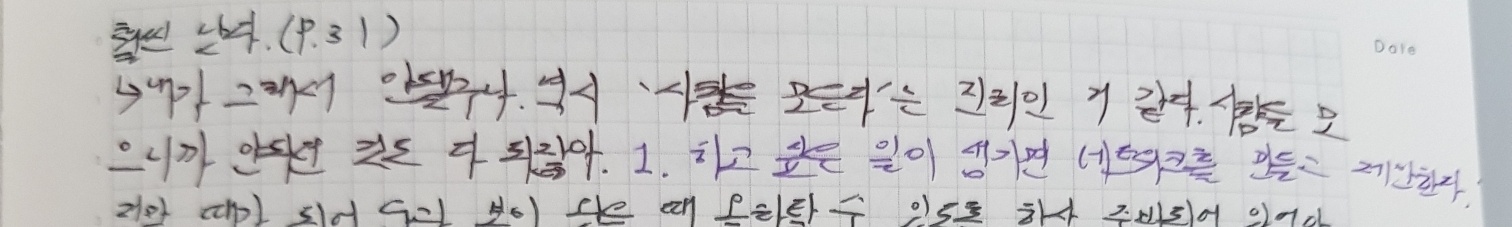 훨씬 낫다. (P.31)
Date
↳내가 그래서 안됐구나. 역시 '사람을 모은다'는 진리인 거 같다. 사람을 모
으니까 안되던 것도 다 되잖아. 1. 하고 싶은 일이 생기면 네트워크를 만들고 제안한다.
때가 되어 때 수 있도록 항상 준비되어 있어야